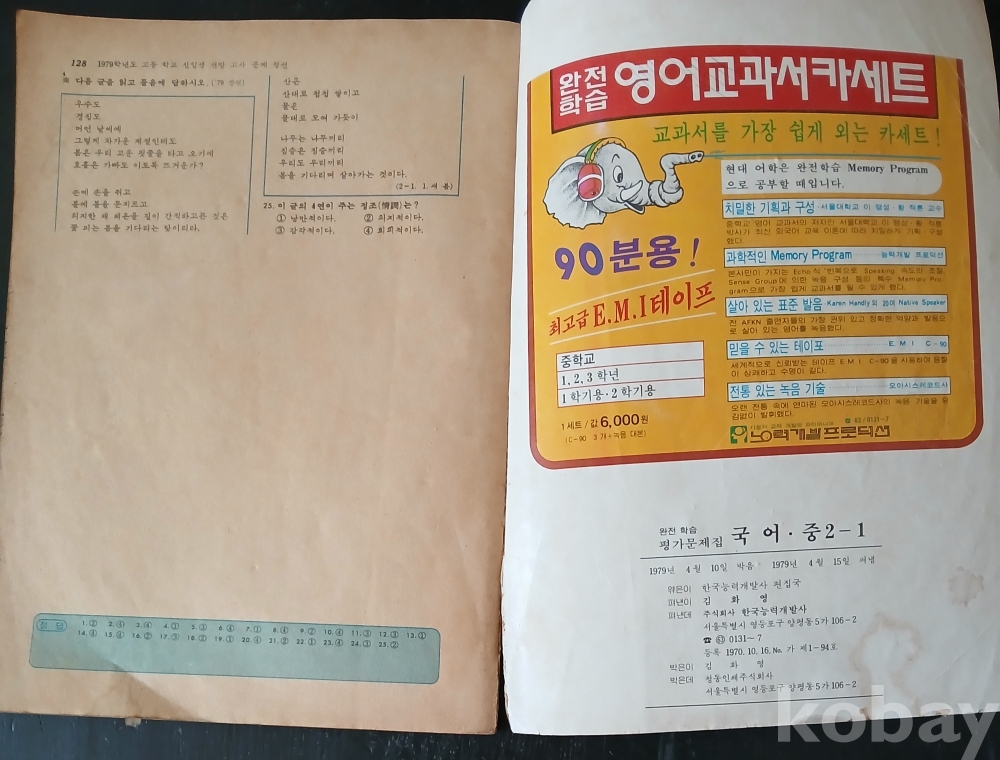 128 1979학년도 고등 학교 신입생 전형 고사 문제 정선
다음 글을 읽고 물음에 답하시오. ('79
우수도
경칩도
머언 날씨에
그렇게 차가운 계절인데도
봄은 우리 고운 핏줄을 타고 오기에
호흡은 가빠도 이토록 뜨거운가?
손에 손을 쥐고
볼에 볼을 문지르고
의지한 채 체온을 길이 간직하고픈 것은
꽃 피는 봄을 기다리는 탓이리라.
산은
산대로 첩첩 쌓이고
물은
물대로 모여 가듯이
나무는 나무끼리
짐승은 짐승끼리
우리도 우리끼리
봄을 기다리며 살아가는 것이다.
(2-1. 1. 새 봄)
25. 이 글의 4연이 주는 정조(情調)는?
① 낭만적이다. ② 의지적이다.
③ 감각적이다. ④ 회의적이다.
정답
1.② 2.④ 3.④ 4.① 5.③ 6.④ 7.① 8.④ 9.② 10.④ 11.③ 12.③ 13.①
14.④ 15.④ 16.② 17.③ 18.② 19.① 20.④ 21.② 22.① 23.④ 24.③ 25.②
완전학습 영어교과서카세트
교과서를 가장 쉽게 외는 카세트!
현대 어학은 완전학습 Memory Program
으로 공부할 때입니다.
치밀한 기획과 구성 -서울대학교 이 맹성·황 적륜 교수
중학교 영어 교과서의 저자인 서울대학교 이 맹성·황 적륜
박사가 최신 외국어 교육 이론에 따라 치밀하게 기획·구성
했다.
과학적인 Memory Program 능력개발 프로덕션
본사만이 가지는 Echo식 반복으로 Speaking 속도의 조절,
Sense Group에 의한 녹음 구성 등의 특수 Memory Pro-
gram으로 가장 쉽게 교과서를 욀 수 있게 했다.
살아 있는 표준 발음 Karen Handly외 20여 Native Speaker
전 AFKN 출연자들의 가장 권위 있고 정확한 억양과 발음으
로 살아 있는 영어를 녹음했다.
믿을 수 있는 테이프 EMI C-90
세계적으로 신뢰받는 테이프 EMI C-90을 사용하여 음질
이 상쾌하고 수명이 길다.
전통 있는 녹음 기술 오아시스레코드사
오랜 전통 속에 연마된 오아시스레코드사의 녹음 기술을 유
감없이 발휘했다.
90분용!
최고급 E.M.I 테이프
중학교
1, 2, 3 학년
1 학기용·2 학기용
1세트/값 6,000원
(C-90 3개+녹음 대본)
☎ 63/0131~7
능력개발프로덕션
완전 학습
평가문제집 국어·중2-1
1979년 4월 10일 박음 1979년 4월 15일 펴냄
엮은이 한국능력개발사 편집국
펴낸이 김화영
펴낸데 주식회사 한국능력개발사
서울특별시 영등포구 양평동 5가 106-2
☎ 63 0131~7
등록 1970. 10. 16. No. 가 제1-94호
박은이 김화영
박은데 정동인쇄주식회사
서울특별시 영등포구 양평동 5가 106-2
kobay